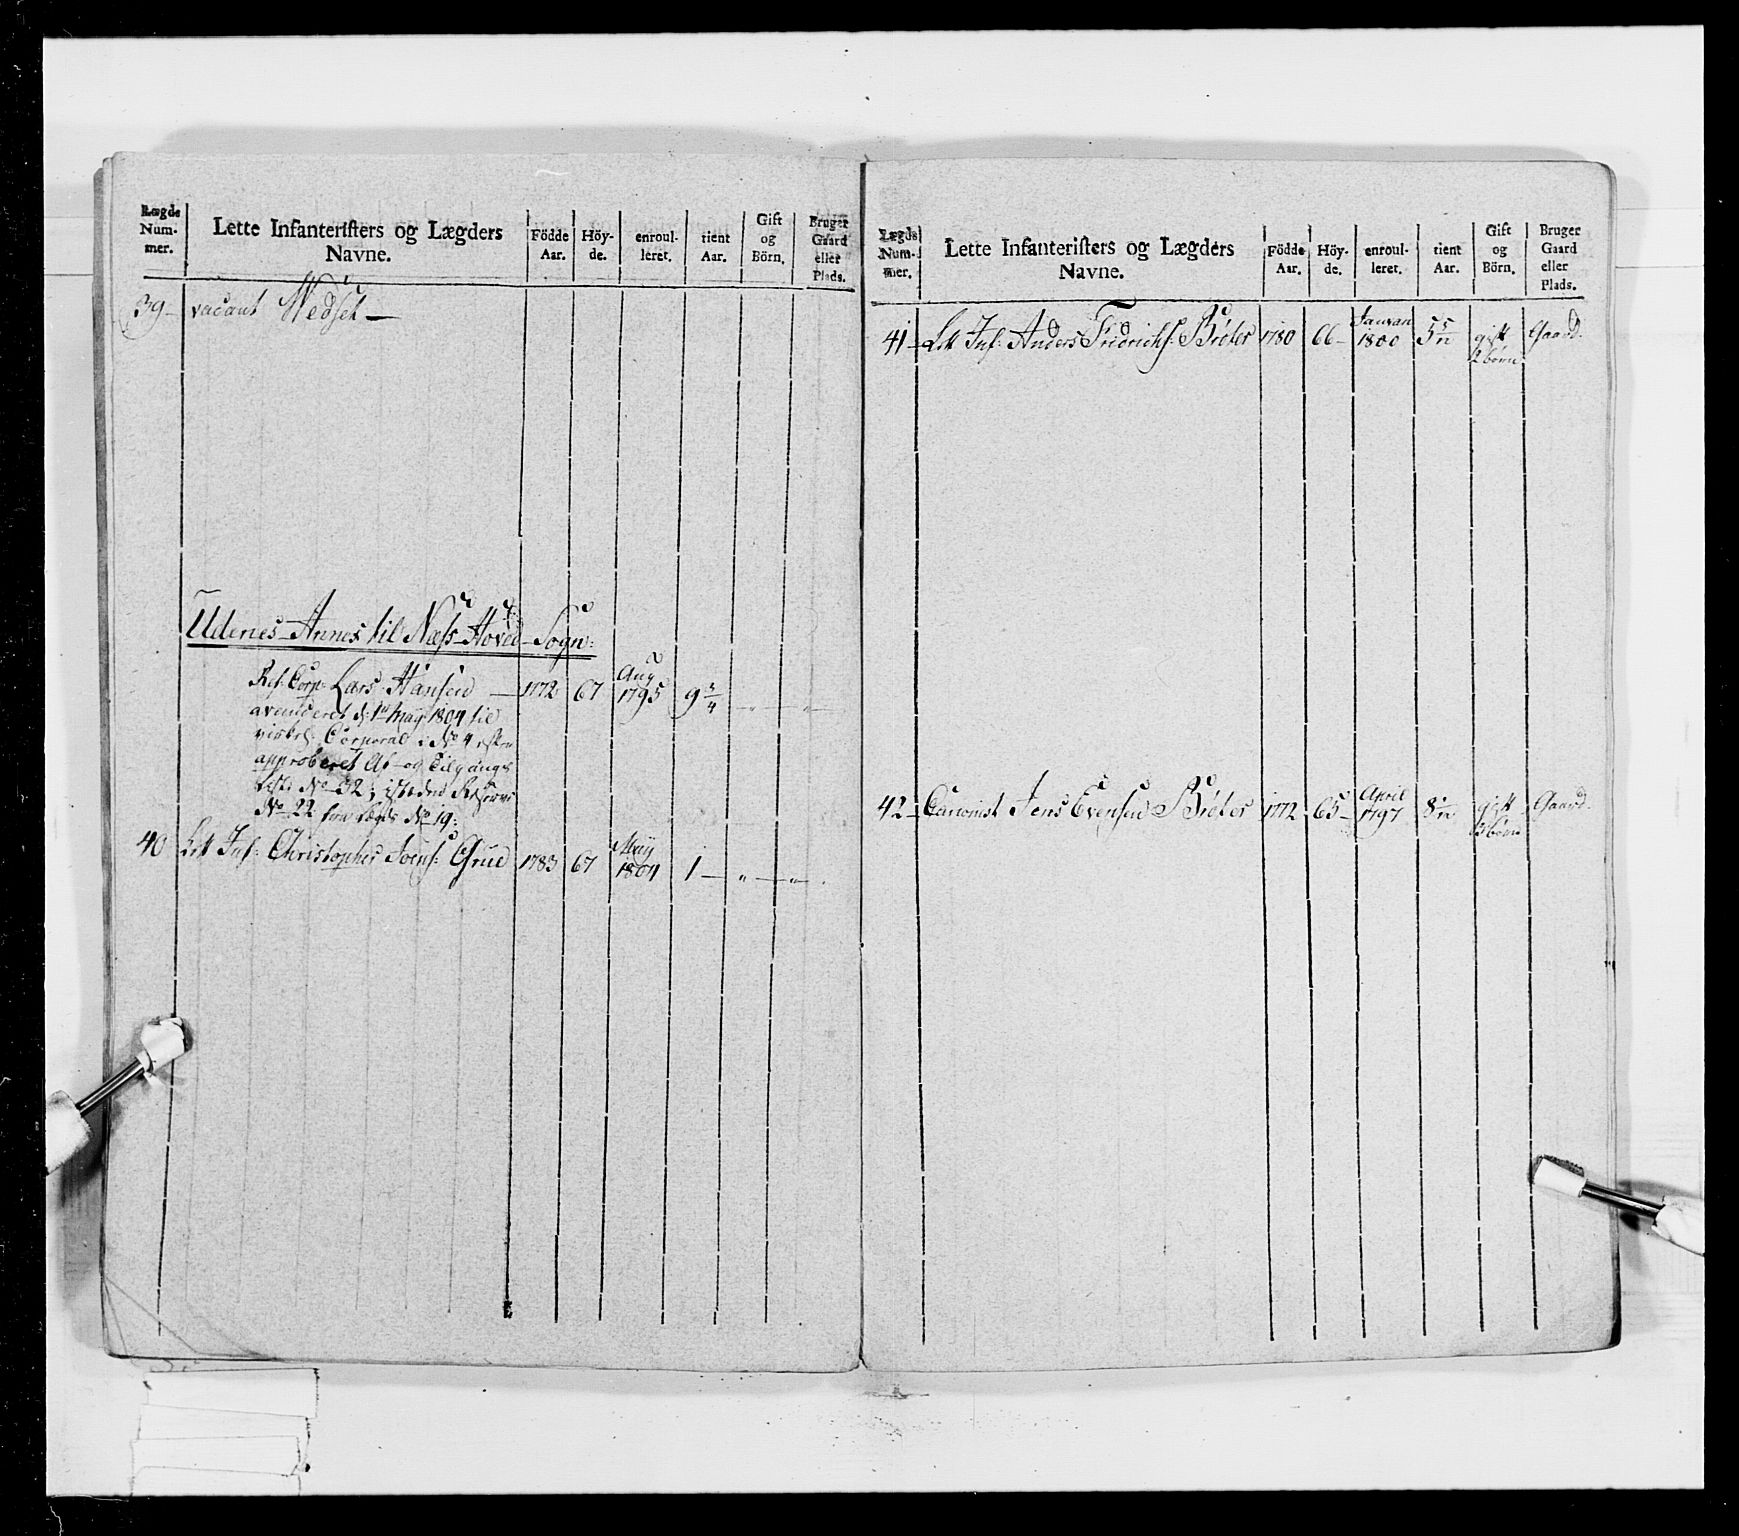 Lægds Num- mer. | Lette Infanterifters og Lægders Navne. | Födde Aar. | Höy- de. | enroul- leret. | tient Aar. | Gift og Börn. | Bruger Gaard eller Plads.
39 vacant Wedset
Udenes Annex til Næss Hoved Sogn:
Res: Corp: Lars Hansen 1772 67 Aug 1795 9 3/4
d: 1te May 1804 til
Corporal i No 4
approberet Af- og Tilgangs
Liste No 32, Reserve
No 22 fra Lægds No 19:
40 Lett Inf: Christopher Joens: Grue 1783 67 May 1804 1 " "
Lægds Num- mer. | Lette Infanterifters og Lægders Navne. | Födde Aar. | Höy- de. | enroul- leret. | tient Aar. | Gift og Börn. | Bruger Gaard eller Plads.
41 Lett Inf: Anders Fridrichs: Broter 1780 66 1800 gift 2 börn Gaard.
42 Jens Evensen Broter 1772 65 April 1797 gift 3 börn Gaard.